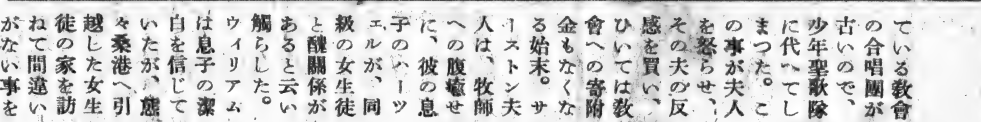 ている教會
の合唱團が
古いので、
少年聖歌隊
に代へてし
まつた。こ
の事が夫人
を怒らせ、
その夫の反
感を買い、
ひいては教
會への寄附
金もなくな
る始末。サ
ーストン夫
人は、牧師
への腹癒せ
に、彼の息
子のハーツ
ェルが、同
級の女生徒
と醜關係が
あると云い
觸らした。
ウィリアム
は息子の潔
白を信じて
いたが、態
々桑港へ引
越した女生
徒の家を訪
ねて間違い
がない事を